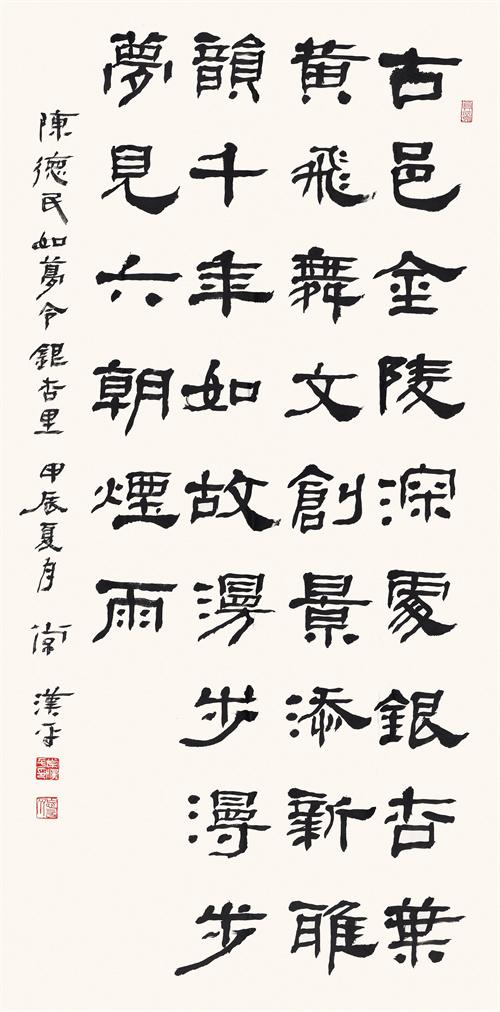 古邑金陵深處銀杏葉
黄飛舞文創景添新雅
韻千年如故漫步漫步
夢見六朝煙雨
陳德民如夢令銀杏里 甲辰夏月 常漢平